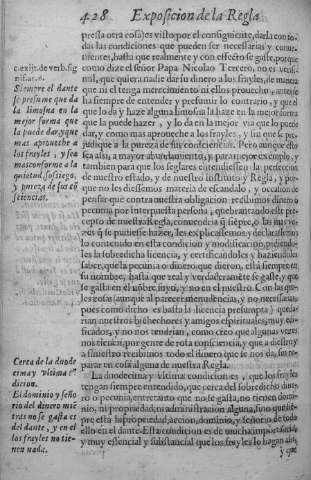 428 Exposicion de la Regla
pressa otra cosa) es visto por el consiguiente, darla con to-
das las condiciones que pueden ser necessarias y conue-
nientes, hasta que realmente y con efecto se gaste, porque
como dize el señor Papa Nicolao Tercero, no es verisi-
mil, que quiera nadie dar su dinero a los frayles, de manera
que ni el tenga merecimiento ni ellos prouecho, antes se
ha siempre de entender y presumir lo contrario, y que el
que lo da y haze alguna limosna la haze en la mejor forma
que la puede hazer, y lo da en la mejor via que lo puede
dar, y como mas aproueche a los frayles, y sin que se per-
judique a la pureza de sus conciencias. Pero aunque esto
sea assi, a mayor abundamiento, y para mejor exemplo, y
tambien para que los seglares entendiessen la perfeccion
de nuestro estado, y de nuestro instituto y Regla, y por-
que no les diessemos materia de escandalo, y occasion de
pensar que contra nuestra obligacion recibimos dinero o
pecunia por interpuesta persona, quebrantando este pre-
cepto de nuestra Regla, conuendria que siempre, o las mas ve-
zes que se pudiesse hazer, les explicassemos y declarassemos
lo contenido en esta condicion y modificacion, pidiendo-
les la sobredicha licencia, y certificandoles y haziendoles
saber, que la pecunia o dinero que dieron, està siempre en
su nombre, hasta que real y verdaderamente se gaste, y que
se gasta en el nombre suyo, y no en el nuestro. Con las qua-
les cosas (aunque al parecer menudencias, y no necessarias,
pues como dicho es basta la licencia presumpta) queda-
rian nuestros bienhechores y amigos espirituales, muy edi-
ficados, y no nos tendrian, como creo que algunas vezes
nos tienen, por gente de rota consciencia, y que a diestro y
a siniestro recibimos todo el dinero que se nos da, sin re-
parar en cosa alguna de nuestra Regla.
La duodecima y vltima condicion es, que los frayles
tengan siempre entendido, que cerca del sobredicho dine-
ro o pecunia, entretanto que no se gasta, no tienen domi-
nio, ni propriedad, ni administracion alguna, sino que sièm-
pre està la propriedad, accion, dominio, y señorio de todo
ello en el dante. Esta condicion es de mucha importancia,
y muy essencial y substancial que los frayles lo hagan assi,
c. exijt. de verb. sig
nif. ar. 6.
Siempre el dante
se presume que da
la limosna en la
mejor forma que
la puede dar, y que
mas aproueche a
los frayles, y sea
mas conforme a la
quietud, sossiego,
y pureza de sus cō
sciencias.
Cerca de la duode
cima y vltima cō
dicion.
El dominio y seño
rio del dinero mié
tras no se gasta es
del dante, y en el
los frayles no tie-
nen nada.